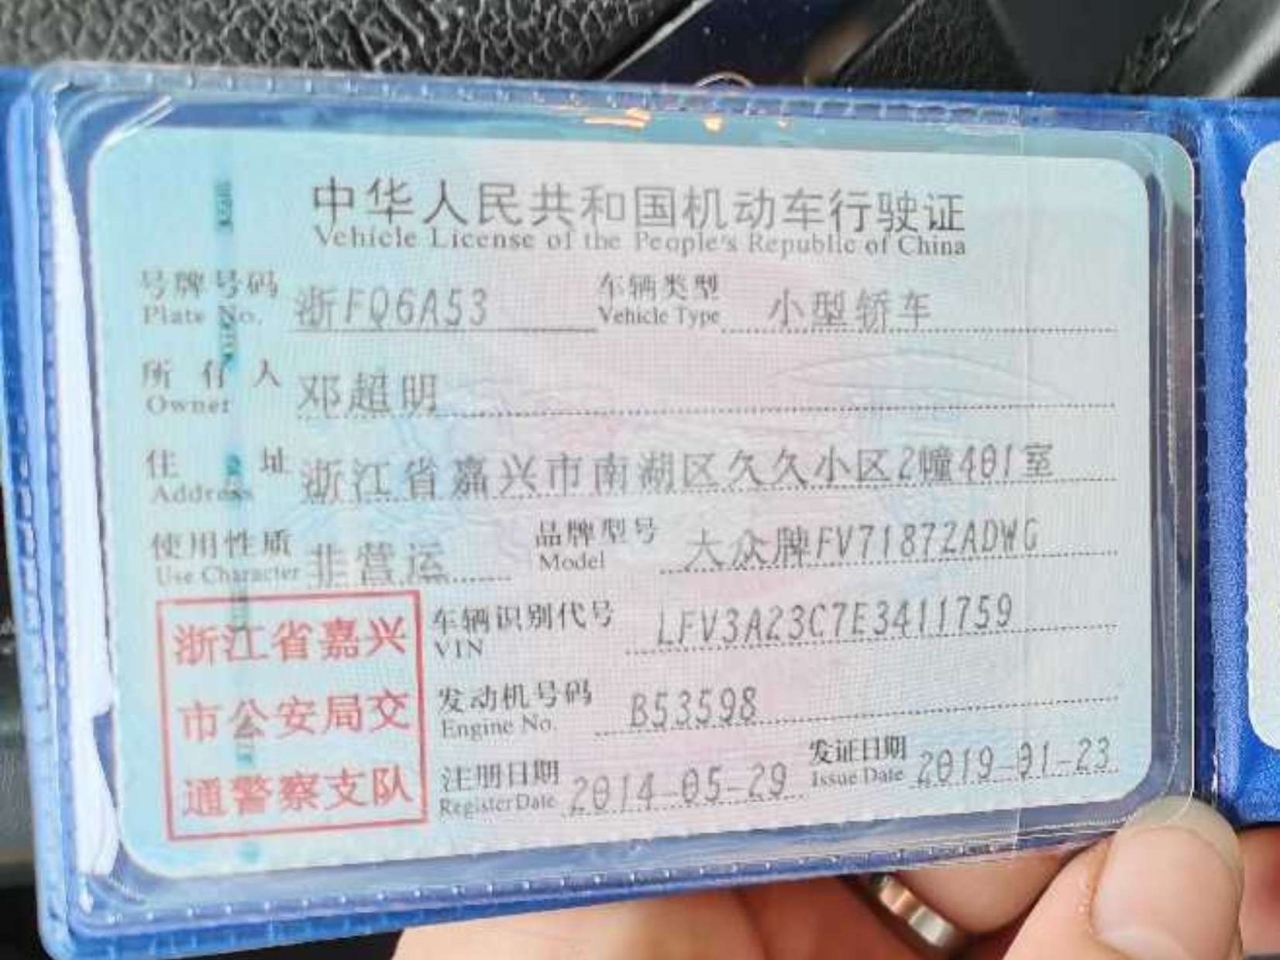 中华人民共和国机动车行驶证
Vehicle License of the People's Republic of China
号牌号码 浙FQ6A53 车辆类型 小型轿车
Plate No. Vehicle Type
所有人 邓超明
Owner
住址 浙江省嘉兴市南湖区久久小区2幢401室
Address
使用性质 非营运 品牌型号 大众牌FV7187ZADWG
Use Character Model
浙江省嘉兴
市公安局交
通警察支队
车辆识别代号 LFV3A23C7E3411759
VIN
发动机号码 B53598
Engine No.
注册日期 2014-05-29 发证日期 2019-01-23
Register Date Issue Date